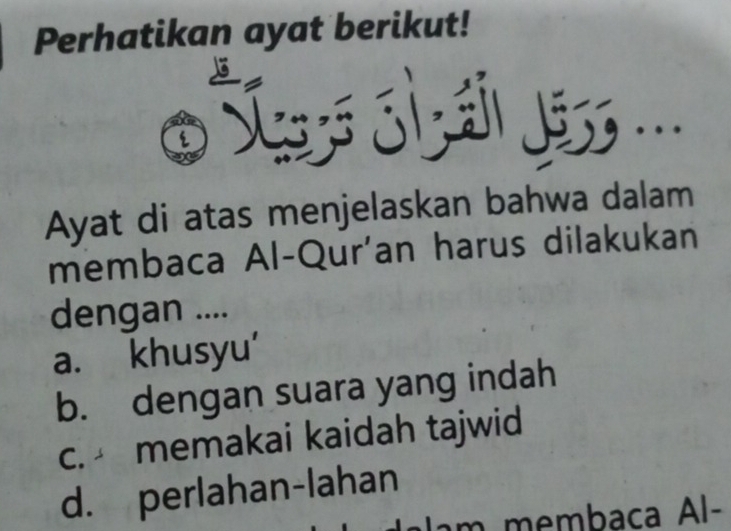 Perhatikan ayat berikut!
... وَرَتِّلِ الْقُرْاٰنَ تَرْتِيْلًاۗ ٤
Ayat di atas menjelaskan bahwa dalam
membaca Al-Qur'an harus dilakukan
dengan ....
a. khusyu'
b. dengan suara yang indah
c. memakai kaidah tajwid
d. perlahan-lahan
dalam membaca Al-